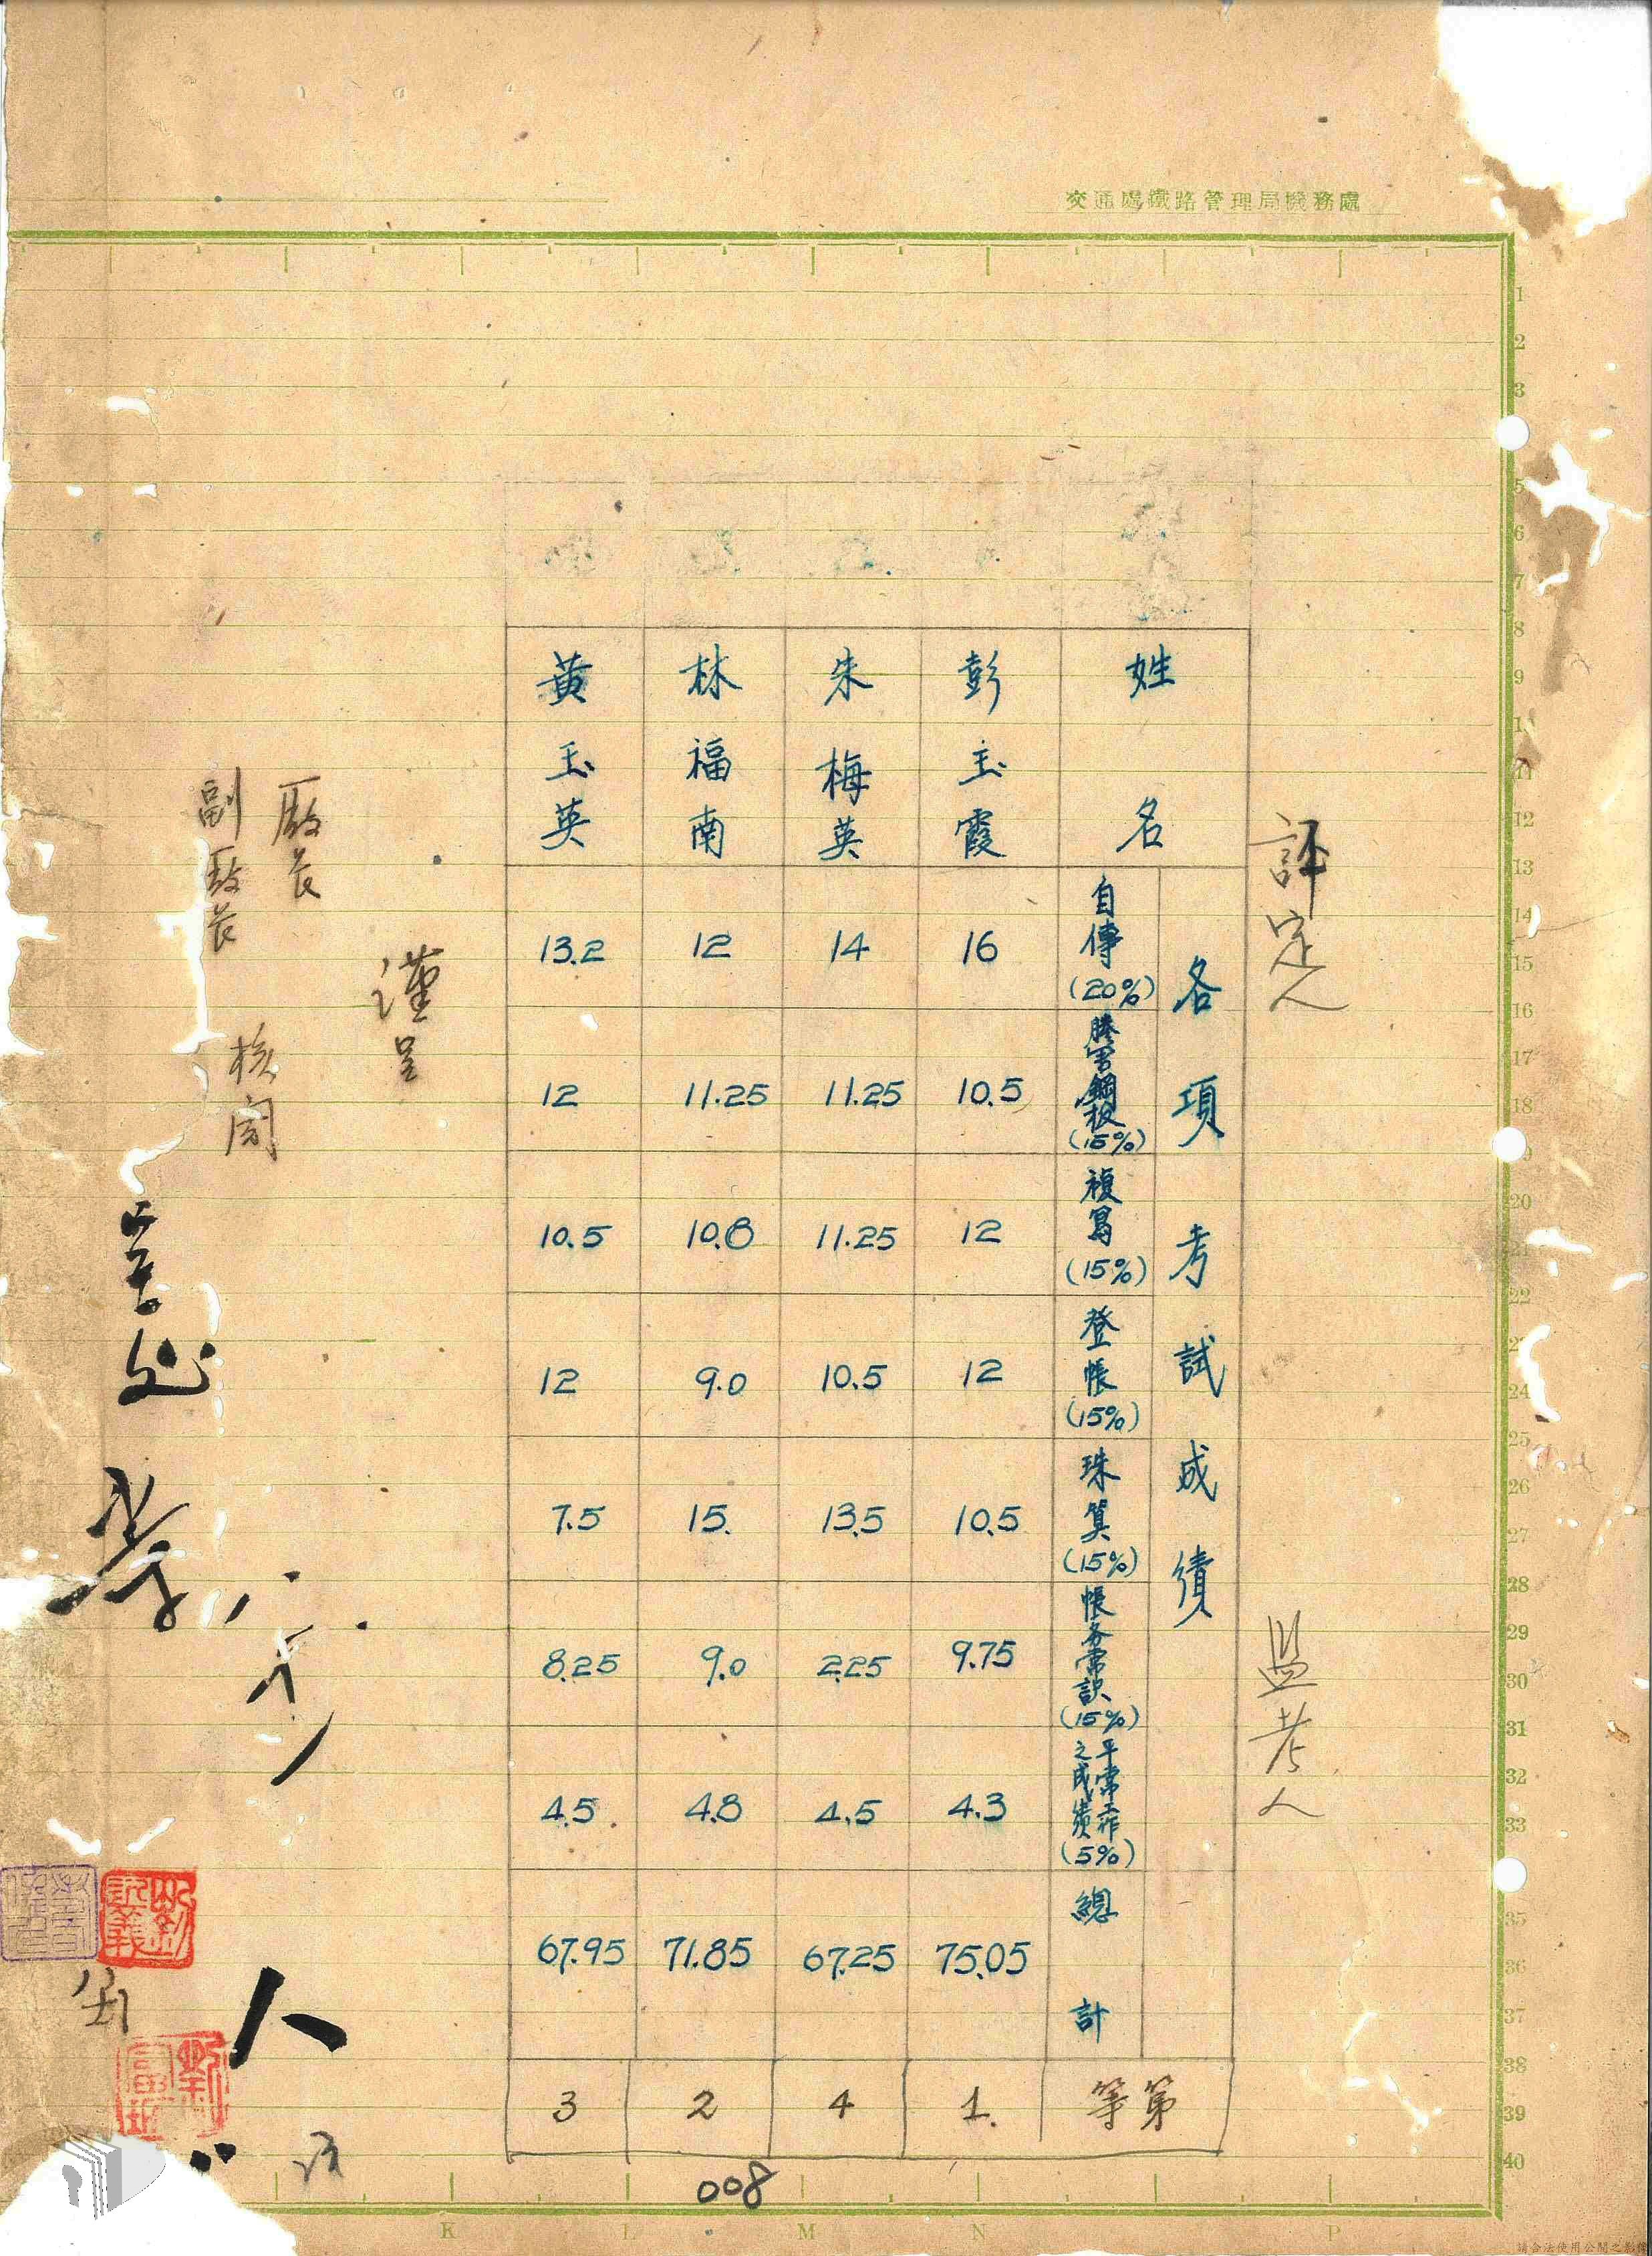 交通處鐵路管理局機務處
評定人 監考人
姓名 各項考試成績 自傳(20%) 謄寫鋼板(15%) 複寫(15%) 登帳(15%) 珠算(15%) 帳務常識(15%) 平常工作之成績(5%) 總計 等第
彭玉霞 16 10.5 12 12 10.5 9.75 4.3 75.05 1.
朱梅英 14 11.25 11.25 10.5 13.5 2.25 4.5 67.25 4
林福南 12 11.25 10.8 9.0 15. 9.0 4.8 71.85 2
黃玉英 13.2 12 10.5 12 7.5 8.25 4.5 67.95 3
謹呈
廠長
副廠長 核閱
008
1
2
3
5
6
7
8
9
11
12
13
14
15
16
17
18
20
21
22
24
25
26
27
28
29
30
31
32
33
35
36
37
38
39
40
K L M N P
請合法使用公開之影像